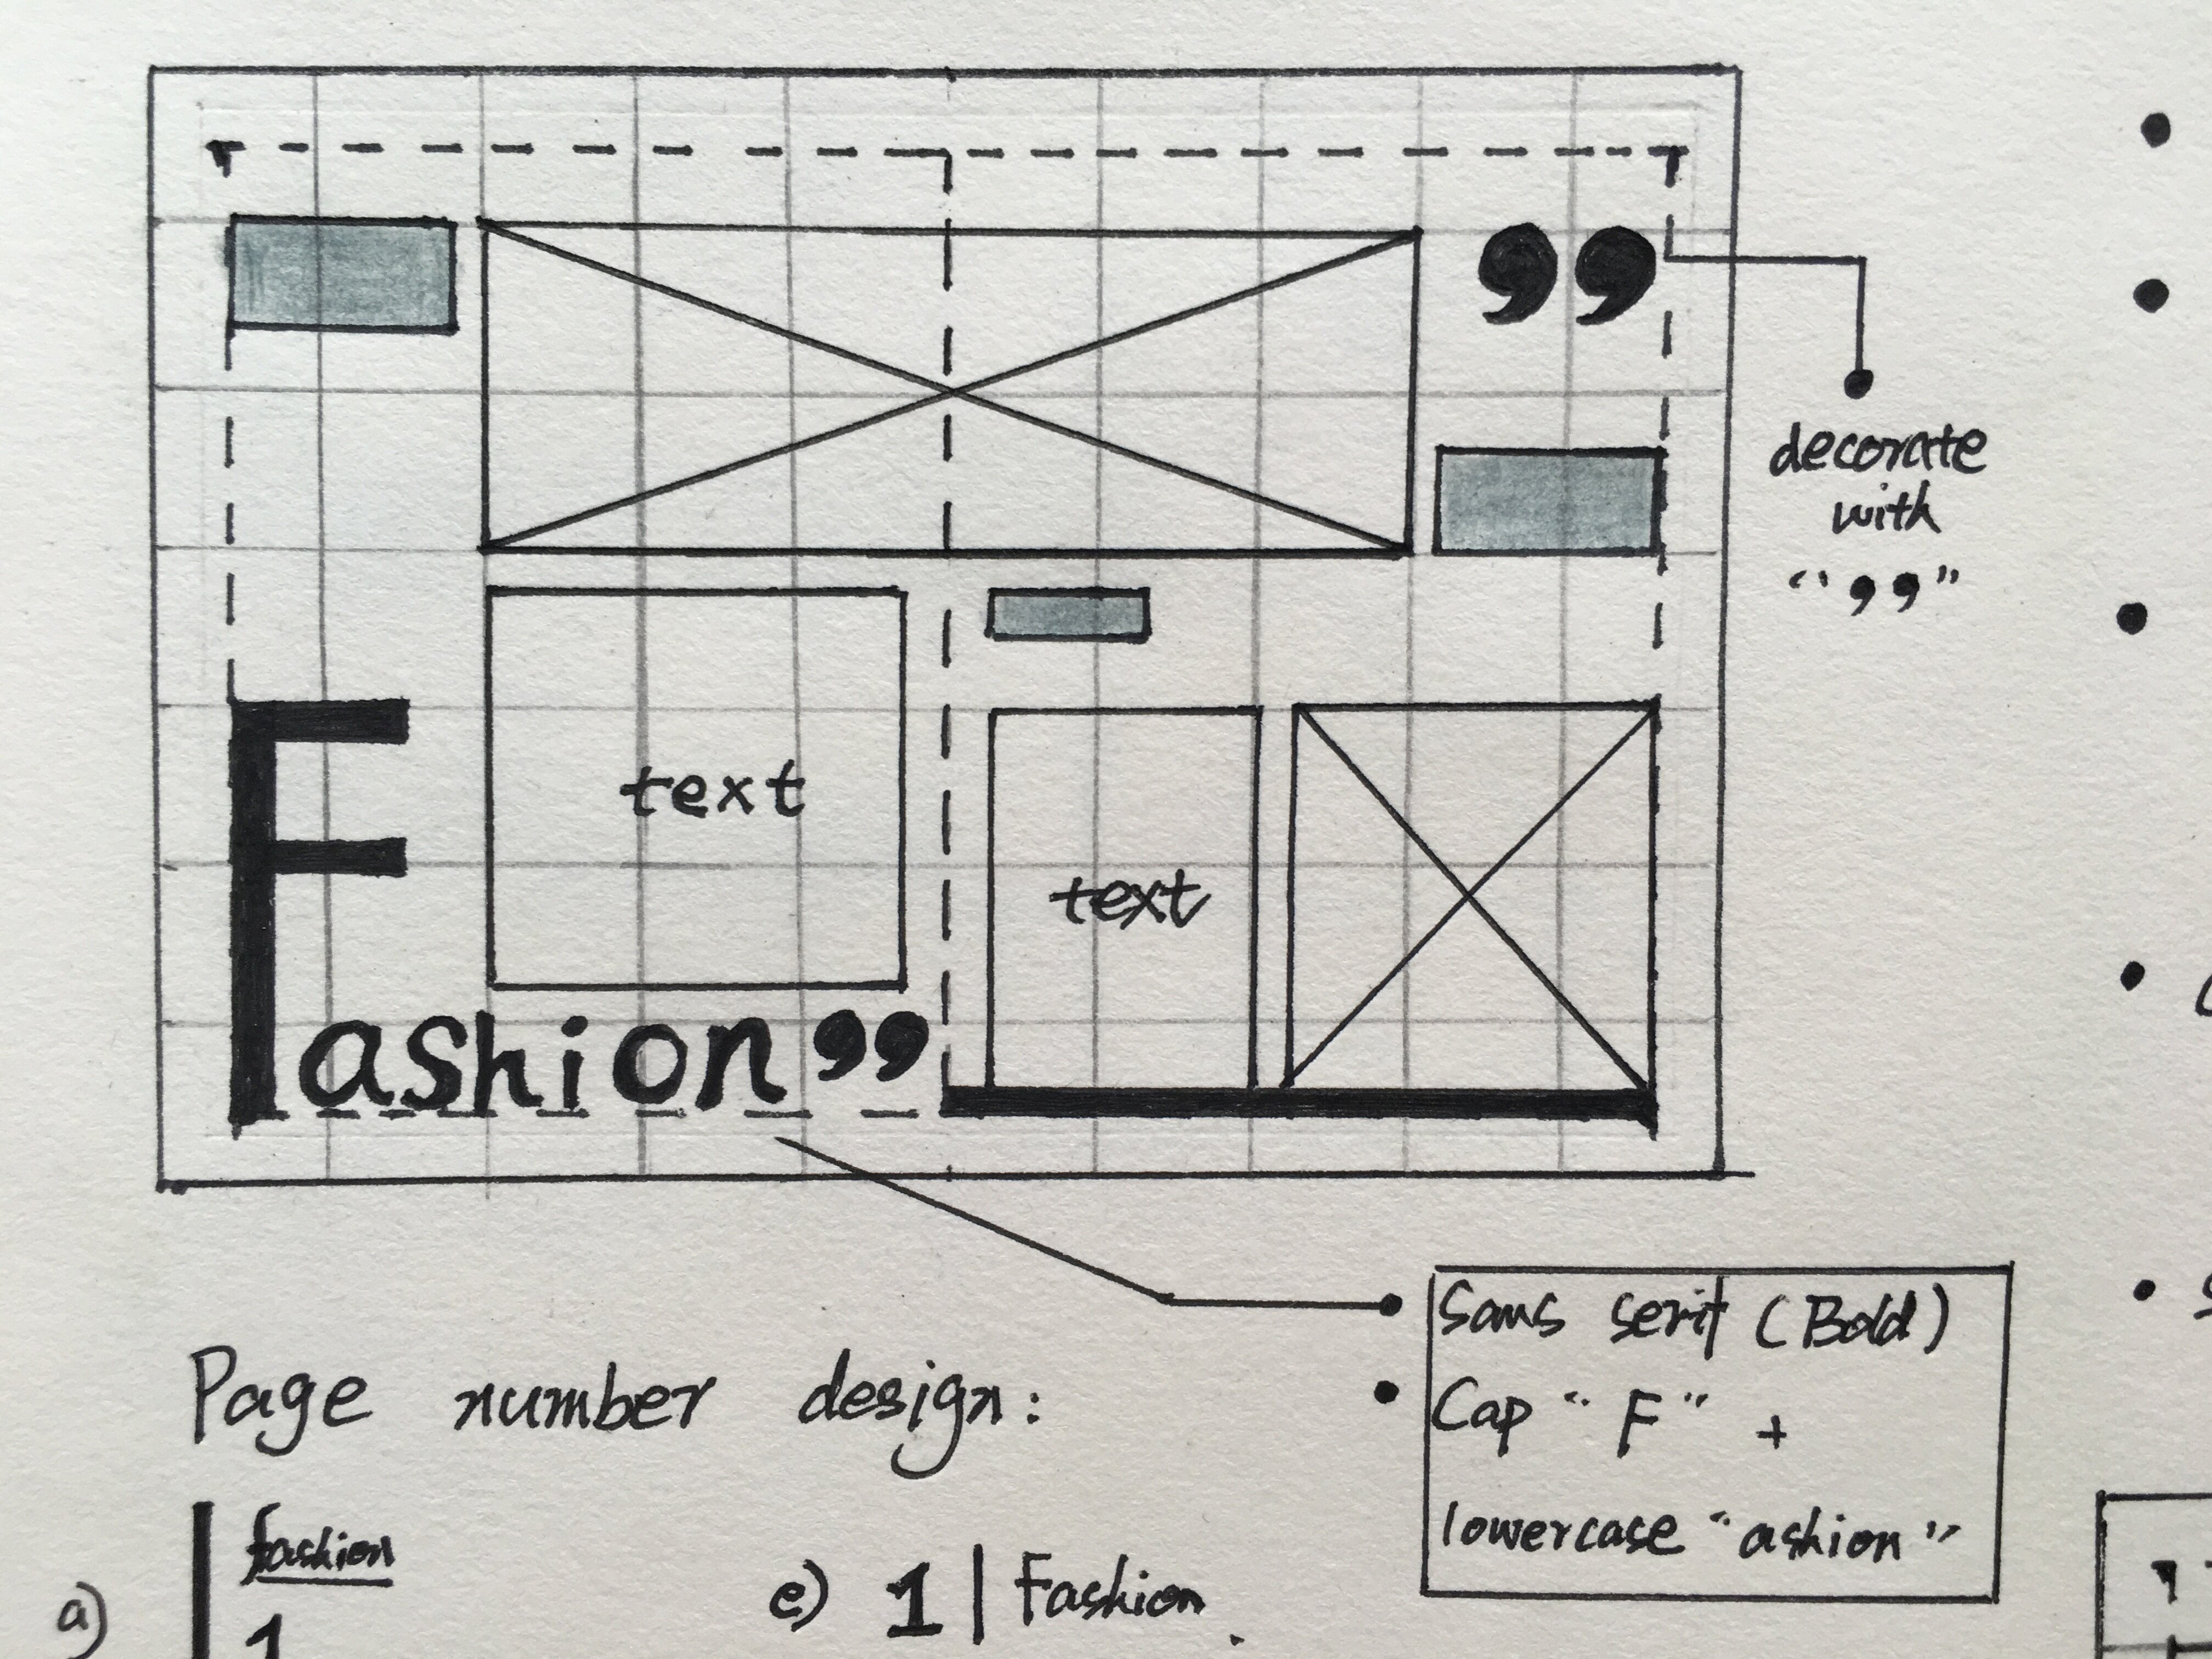 ”
decorate
with
“ ,, ”
text
text
Fashion”
Sans serif (Bold)
Cap “F” +
lowercase “ashion”
Page number design:
a) fashion
1
e) 1 | Fashion